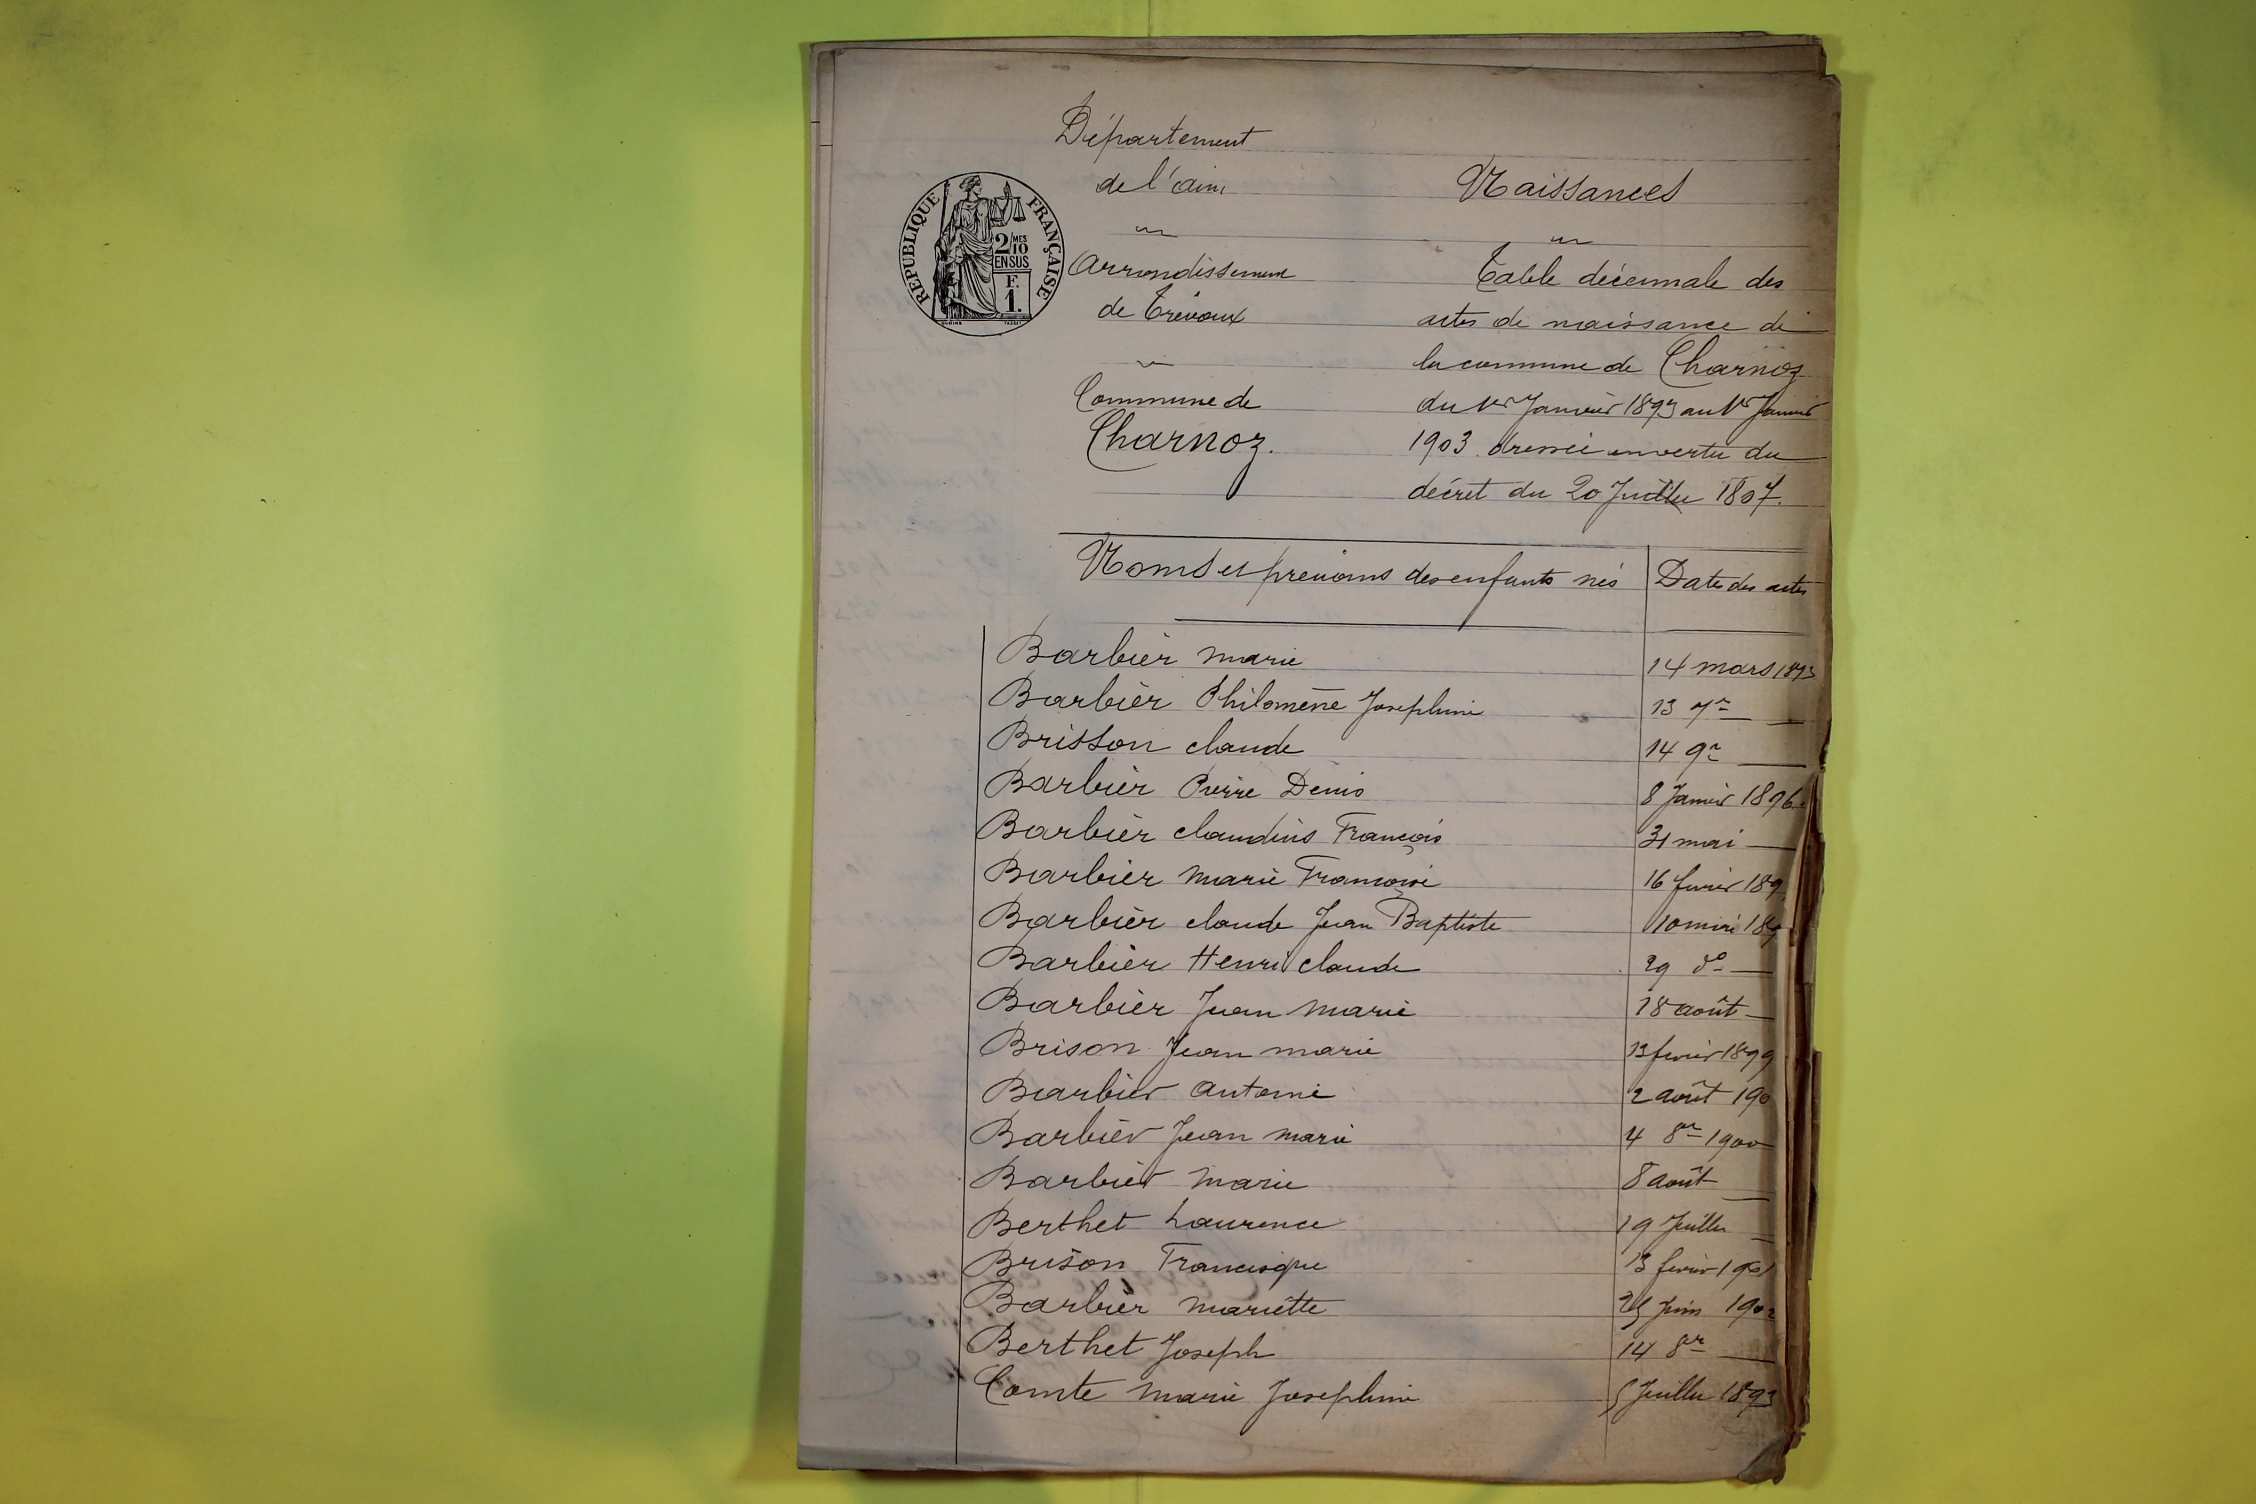 Département
de l'ain
Arrondissement
de Trévoux
Commune de
Charnoz.
RÉPUBLIQUE FRANÇAISE
2/MES 10
EN SUS
F.
1.
Naissances
Table décennale des
actes de naissance de
la commune de Charnoz
du 1er Janvier 1893 au 1er Janvier
1903 dressée en vertu du
décret du 20 Juillet 1807.
Noms et prénoms des enfants nés | Dates des actes
Barbier marie 14 mars 1893
Barbier Philomène Josephine 13 7re —
Brisson claude 14 9re —
Barbier Pierre Denis 8 Janvier 1896
Barbier claudius François 31 mai —
Barbier marie Françoise 16 fevrier 189
Barbier claude Jean Baptiste 10 mai 189
Barbier Henri claude 29 do —
Barbier Jean marie 18 août —
Brison Jean marie 13 fevrier 1899
Barbier antoine 2 août 190
Barbier Jean marie 4 8re 1900
Barbier marie 8 août —
Berthet Laurence 19 Juillet —
Brison Francisque 13 fevrier 1901
Barbier mariette 25 Juin 1902
Berthet Joseph 14 8re —
Comte marie Josephine 5 Juillet 1893